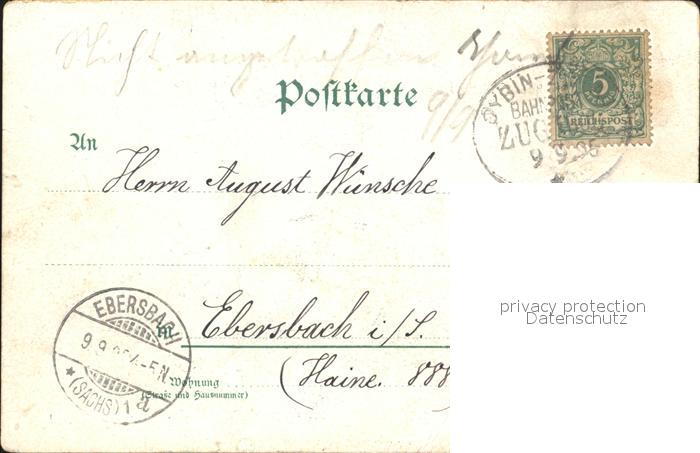 Nicht angetroffen
Postkarte
9/9
An
Herrn August Wünsche
in Ebersbach i/S.
(Haine. 888
Wohnung
(Straße und Hausnummer)
OYBIN-
BAHNPOST
ZUG
9 9 96
5
PFENNIG
REICHSPOST
EBERSBACH
9.9. 4-5N
* (SACHS) 1 a
privacy protection
Datenschutz